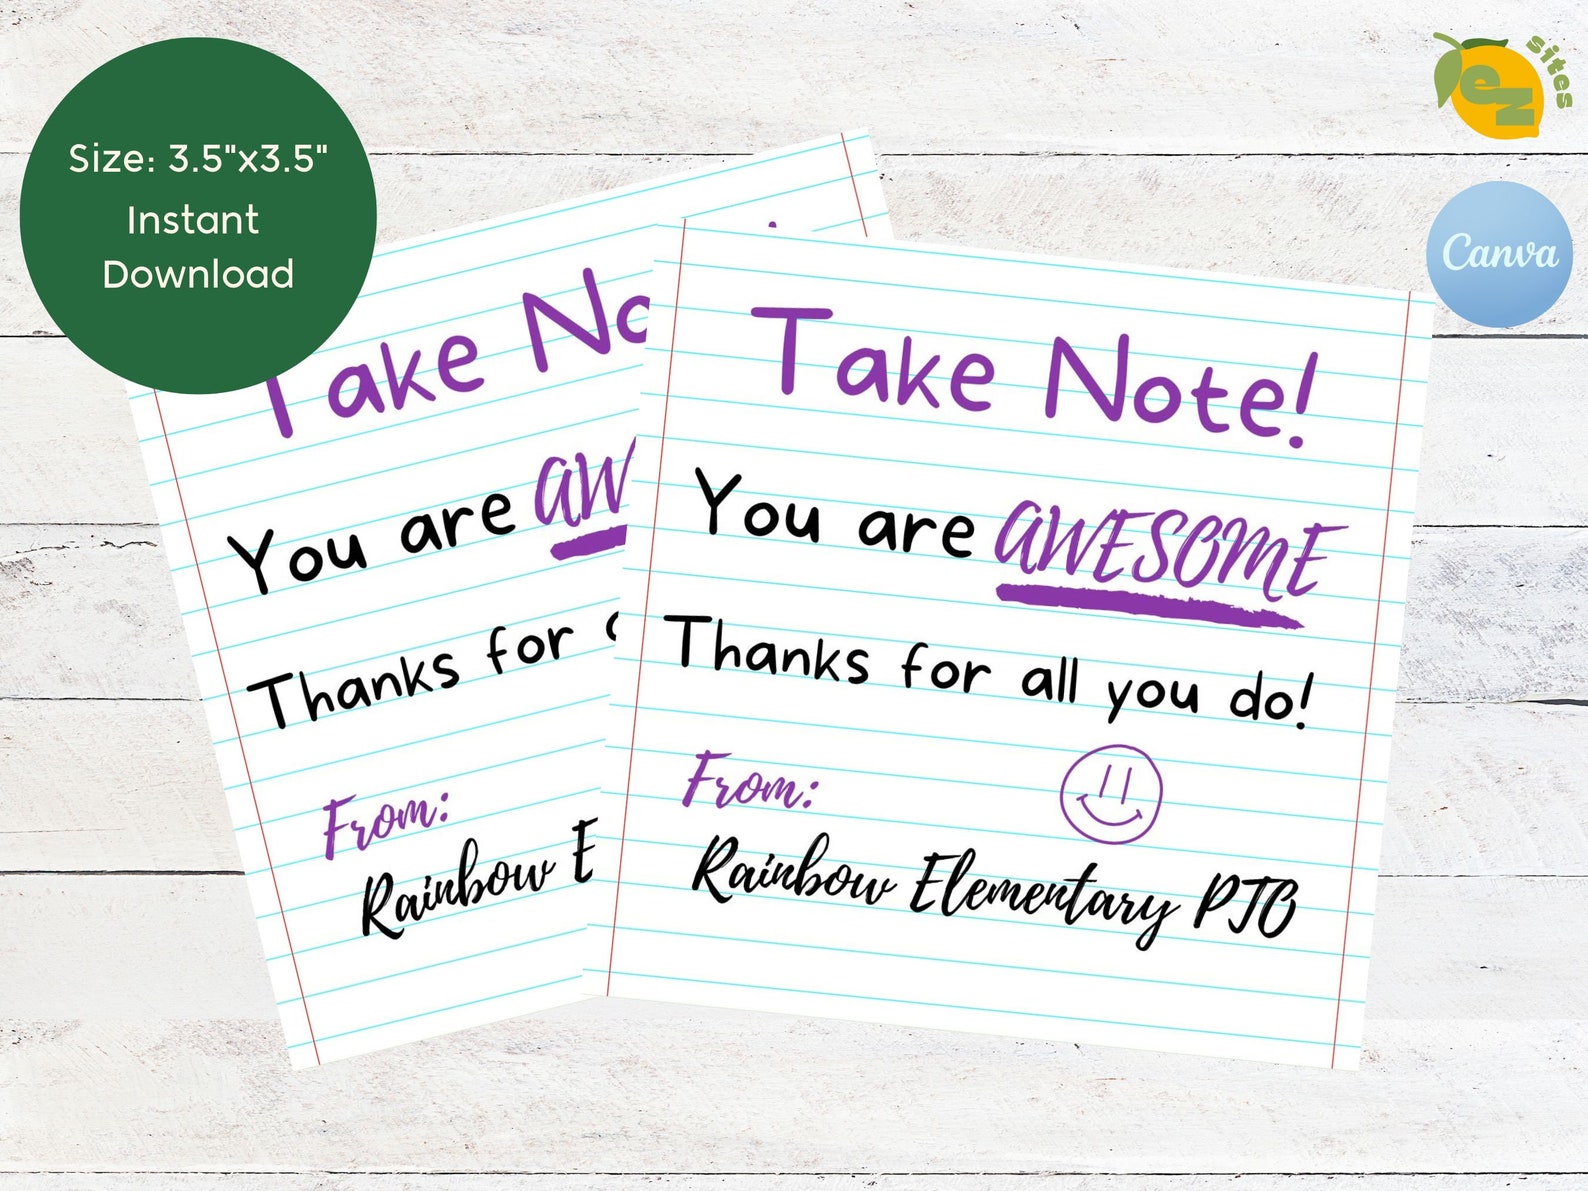 Size: 3.5"x3.5"
Instant
Download
eZ
sites
Canva
Take No
You are AW
Thanks for
From:
Rainbow E
Take Note!
You are AWESOME
Thanks for all you do!
From:
Rainbow Elementary PTO